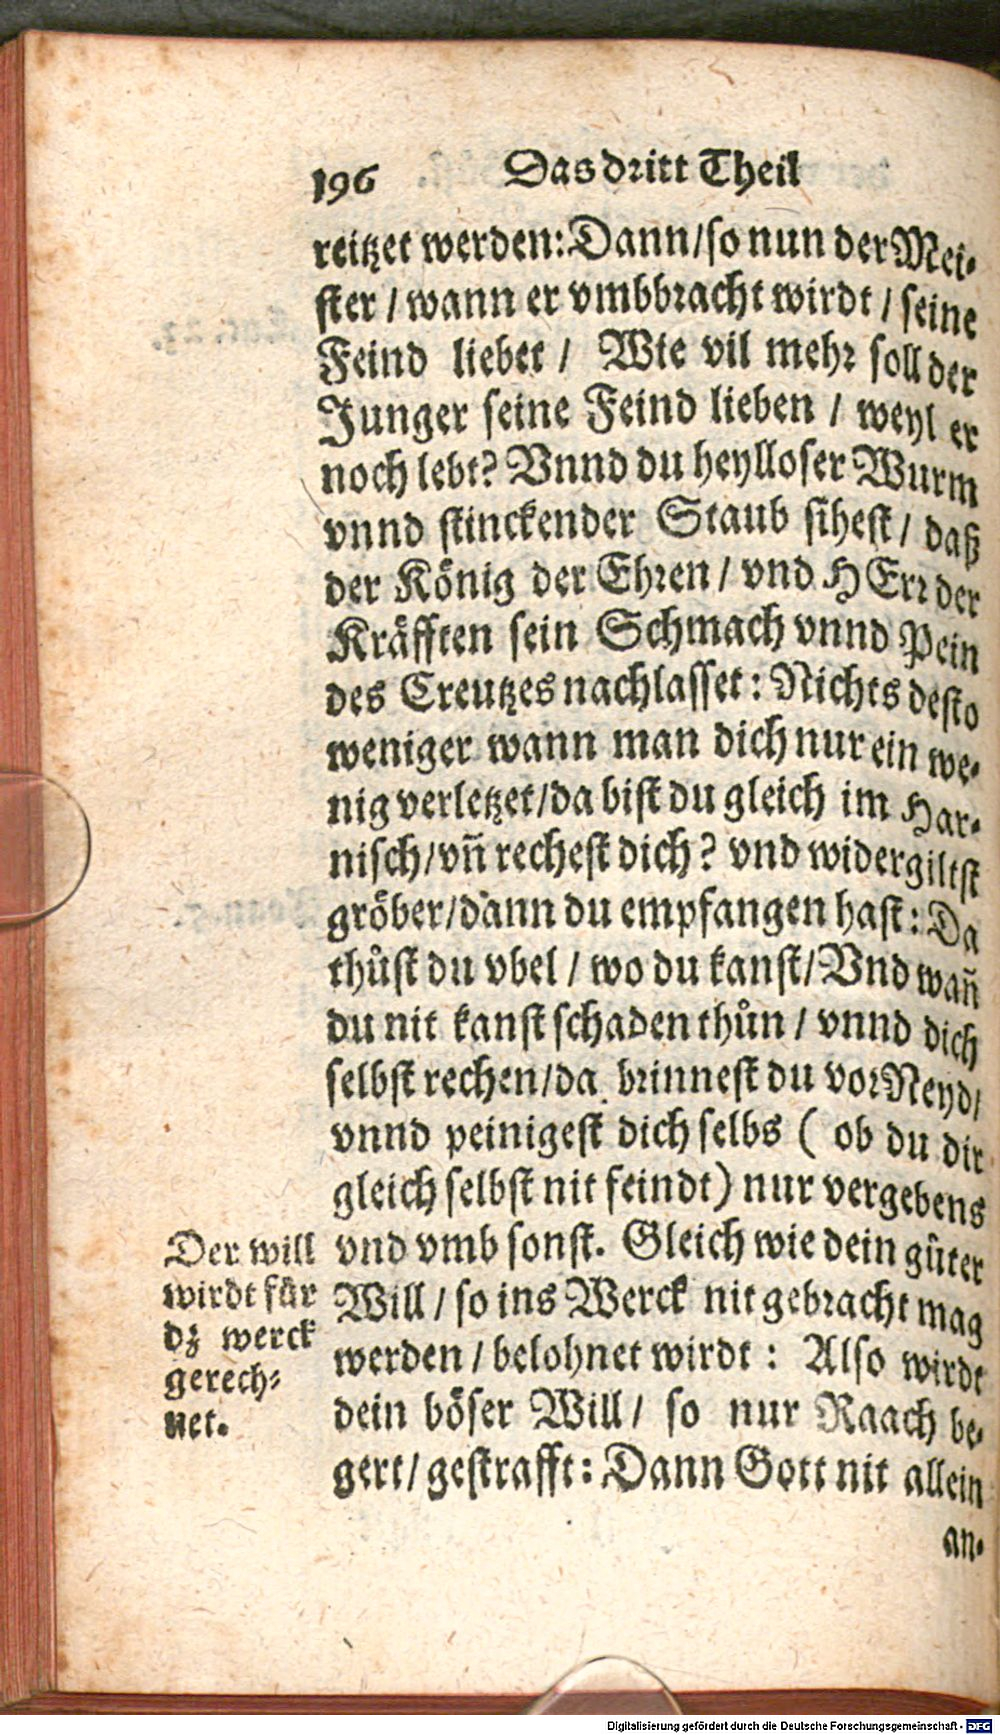 196 Das dritt Theil
reitzet werden: Dann/so nun der Mei-
ster / wann er vmbbracht wirdt / seine
Feind liebet / Wie vil mehr soll der
Junger seine Feind lieben / weyl er
noch lebt? Vnnd du heylloser Wurm
vnnd stinckender Staub sihest / daß
der König der Ehren / vnd HErr der
Kräfften sein Schmach vnnd Pein
des Creutzes nachlasset: Nichts desto
weniger wann man dich nur ein we-
nig verletzet/da bist du gleich im Har-
nisch/vñ rechest dich? vnd widergiltst
gröber/dann du empfangen hast: Da
thůst du vbel / wo du kanst/Vnd wañ
du nit kanst schaden thůn / vnnd dich
selbst rechen/da brinnest du vor Neyd/
vnnd peinigest dich selbs ( ob du dir
gleich selbst nit feindt) nur vergebens
vnd vmb sonst. Gleich wie dein gůter
Will / so ins Werck nit gebracht mag
werden / belohnet wirdt : Also wirdt
dein böser Will / so nur Raach be-
gert/gestrafft: Dann Gott nit allein
an-
Der will
wirdt für
dz werck
gerech-
net.
Digitalisierung gefördert durch die Deutsche Forschungsgemeinschaft - DFG